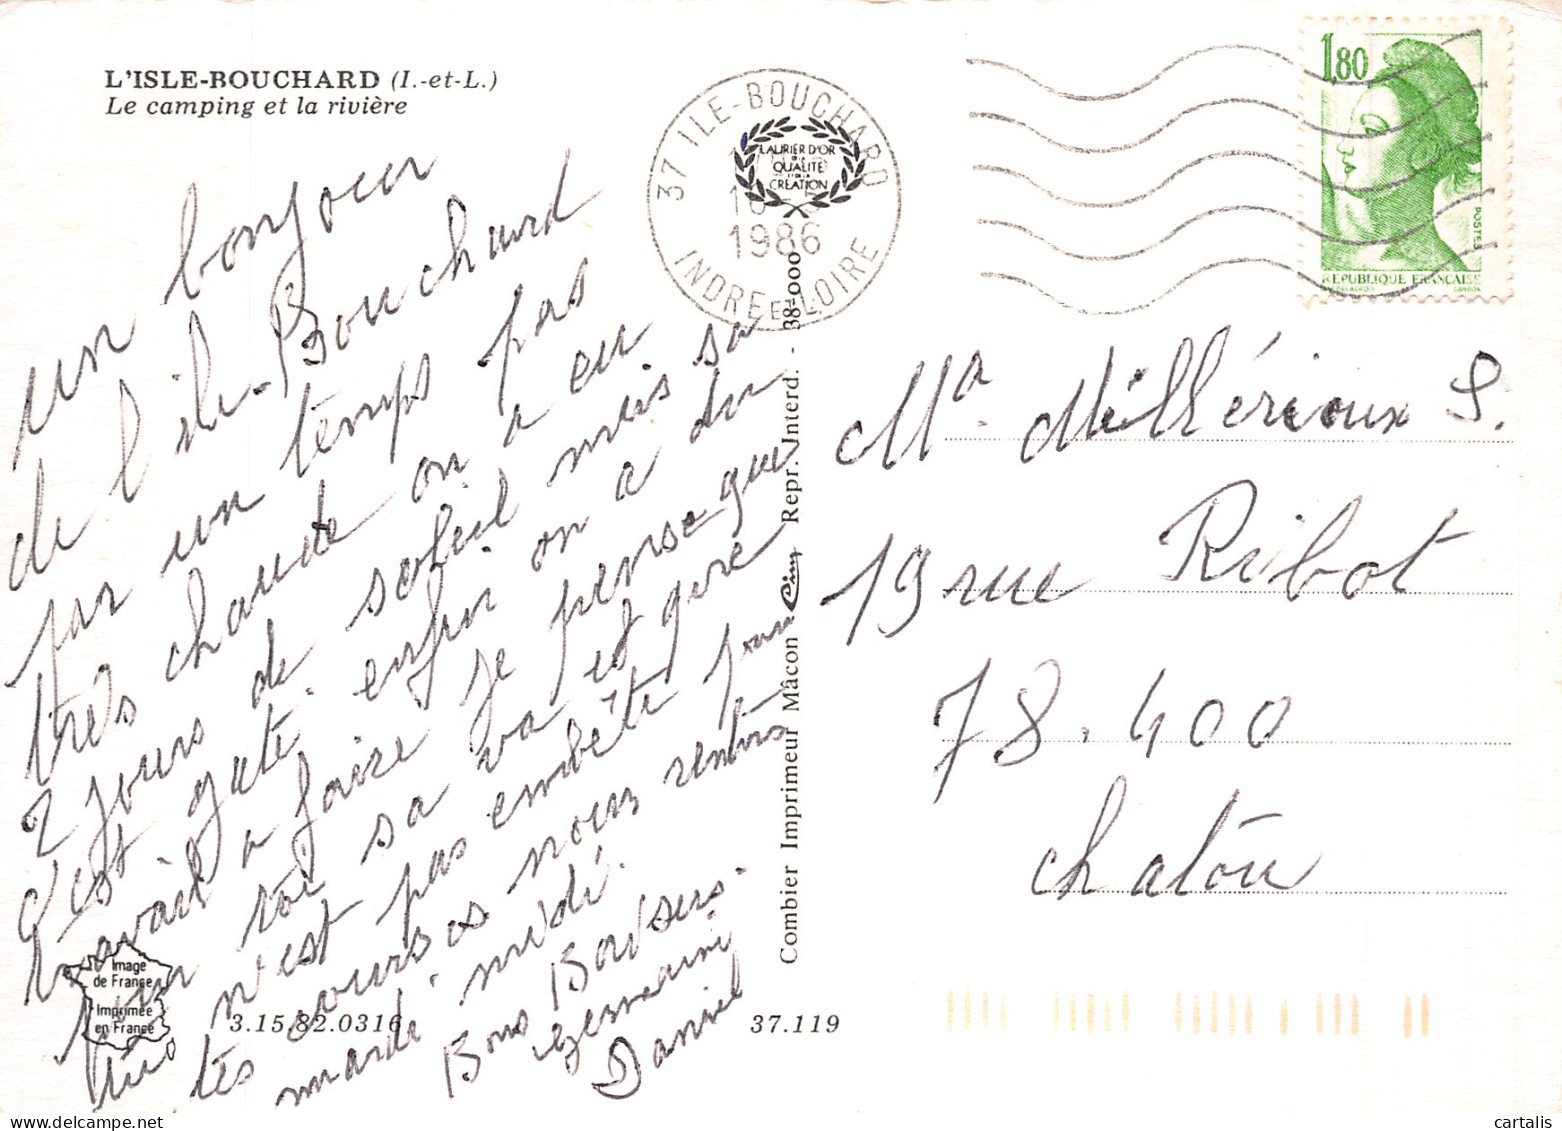 L'ISLE-BOUCHARD (I.-et-L.)
Le camping et la rivière
37 ILE-BOUCHARD
LAURIER D'OR
DE LA
QUALITE
ET DE LA
CREATION
1986
INDRE ET LOIRE
1,80
POSTES
REPUBLIQUE FRANÇAISE
un bonjour
de l'ile-Bouchard
par un temps pas
très chaude on a eu
2 jours de soleil mais sa
c'est gaté. enfin on a du
travail a faire je pense que
pour toi sa va et gure
n'est pas embêté pour
tes courses nous rentrons
mardi midi.
Bons Baisers.
Germaine
Daniel
Ma. Millérioux S.
19 rue Ribot
78.400
chatou
Combier Imprimeur Mâcon Cim Repr. Interd. - 38-000
Image
de France
Imprimée
en France
3.15.82.0316
37.119
cartalis